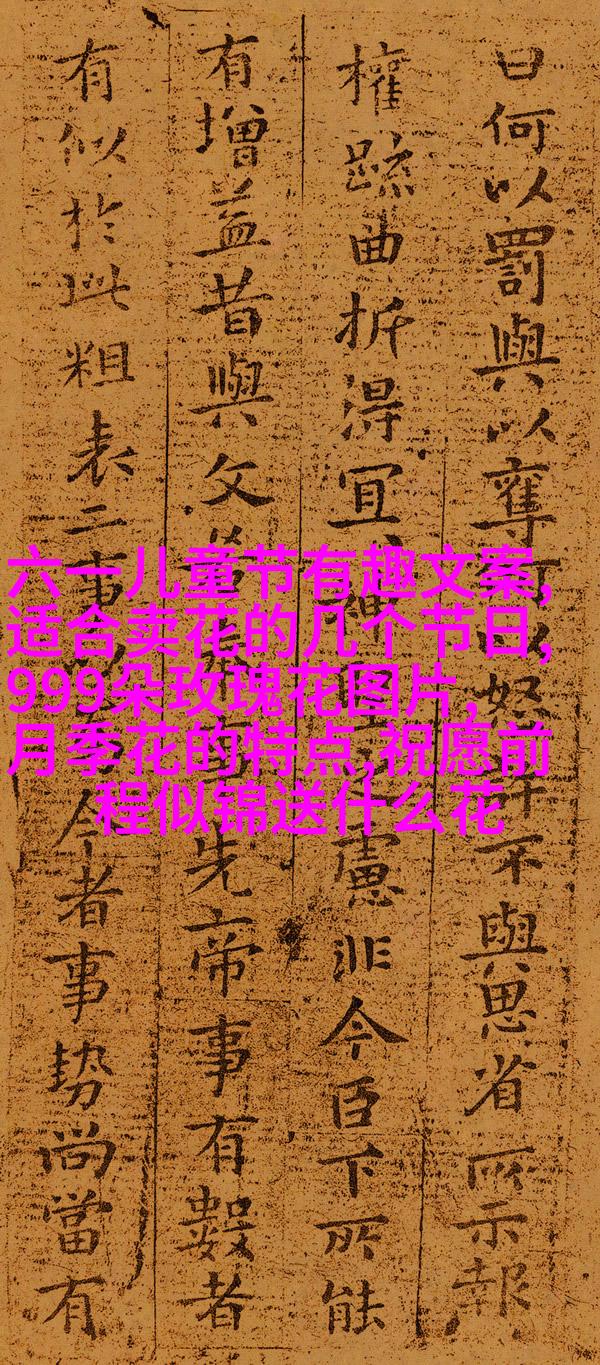 曰何以罰與以奪何以怒許不與思省所示報
權疏曲折得宜神聖之慮非今臣下所能
有增益昔與文若事先帝事有數者
有似於此粗表二事以今者事勢尚當有
六一儿童节有趣文案,
适合卖花的几个节日,
999朵玫瑰花图片,
月季花的特点,祝愿前
程似锦送什么花